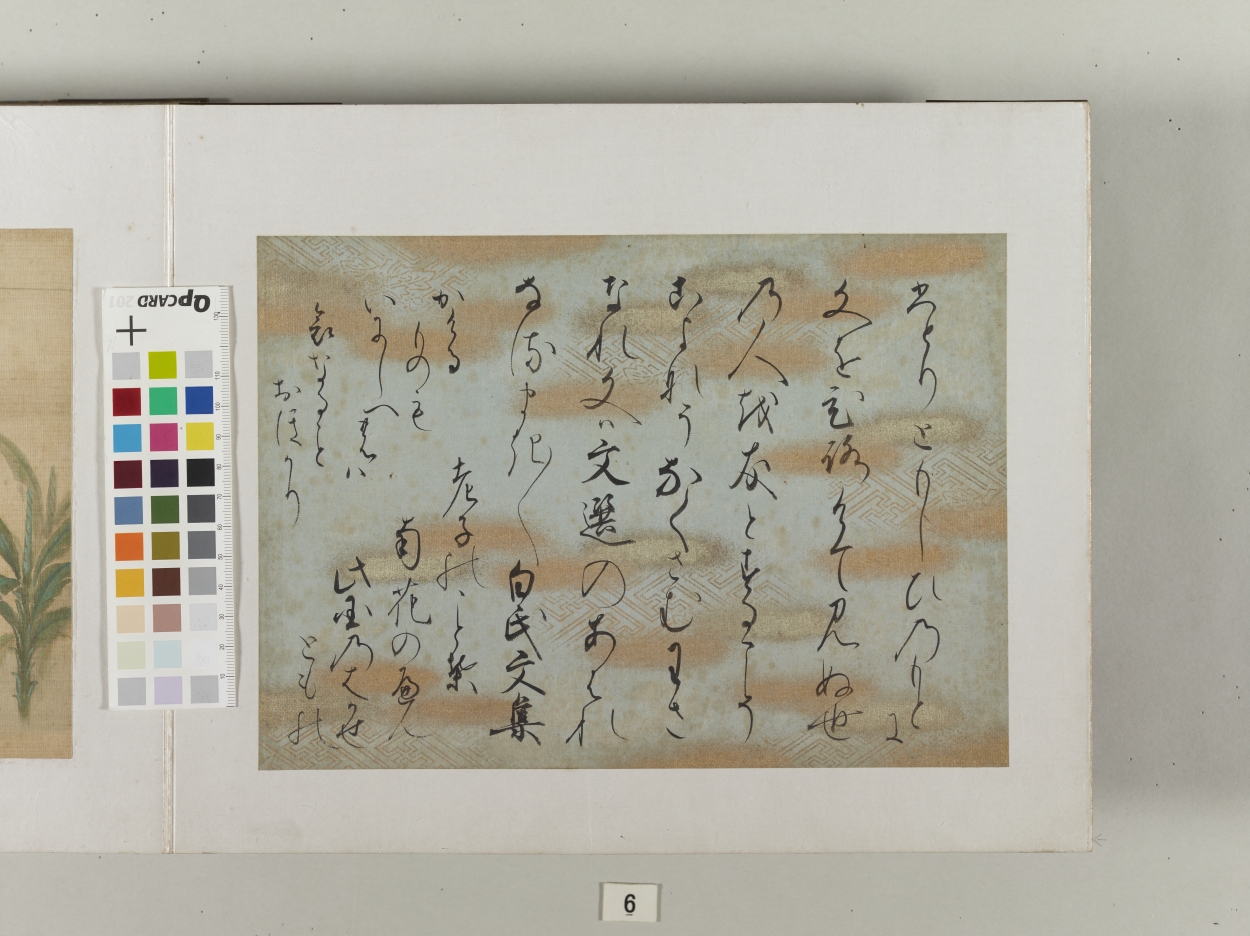 ひとりともしひのもとに
文をひろけて見ぬ世
の人を友とするこそ
こよなうなくさむわさ
なれ文ハ文選のあはれ
なるまき〱白氏文集
老子のこと葉
南花のへん
此国のはかせ
ともの
かける
ものも
いにしへのハ
哀なること
おほかり
QPCARD 201
6